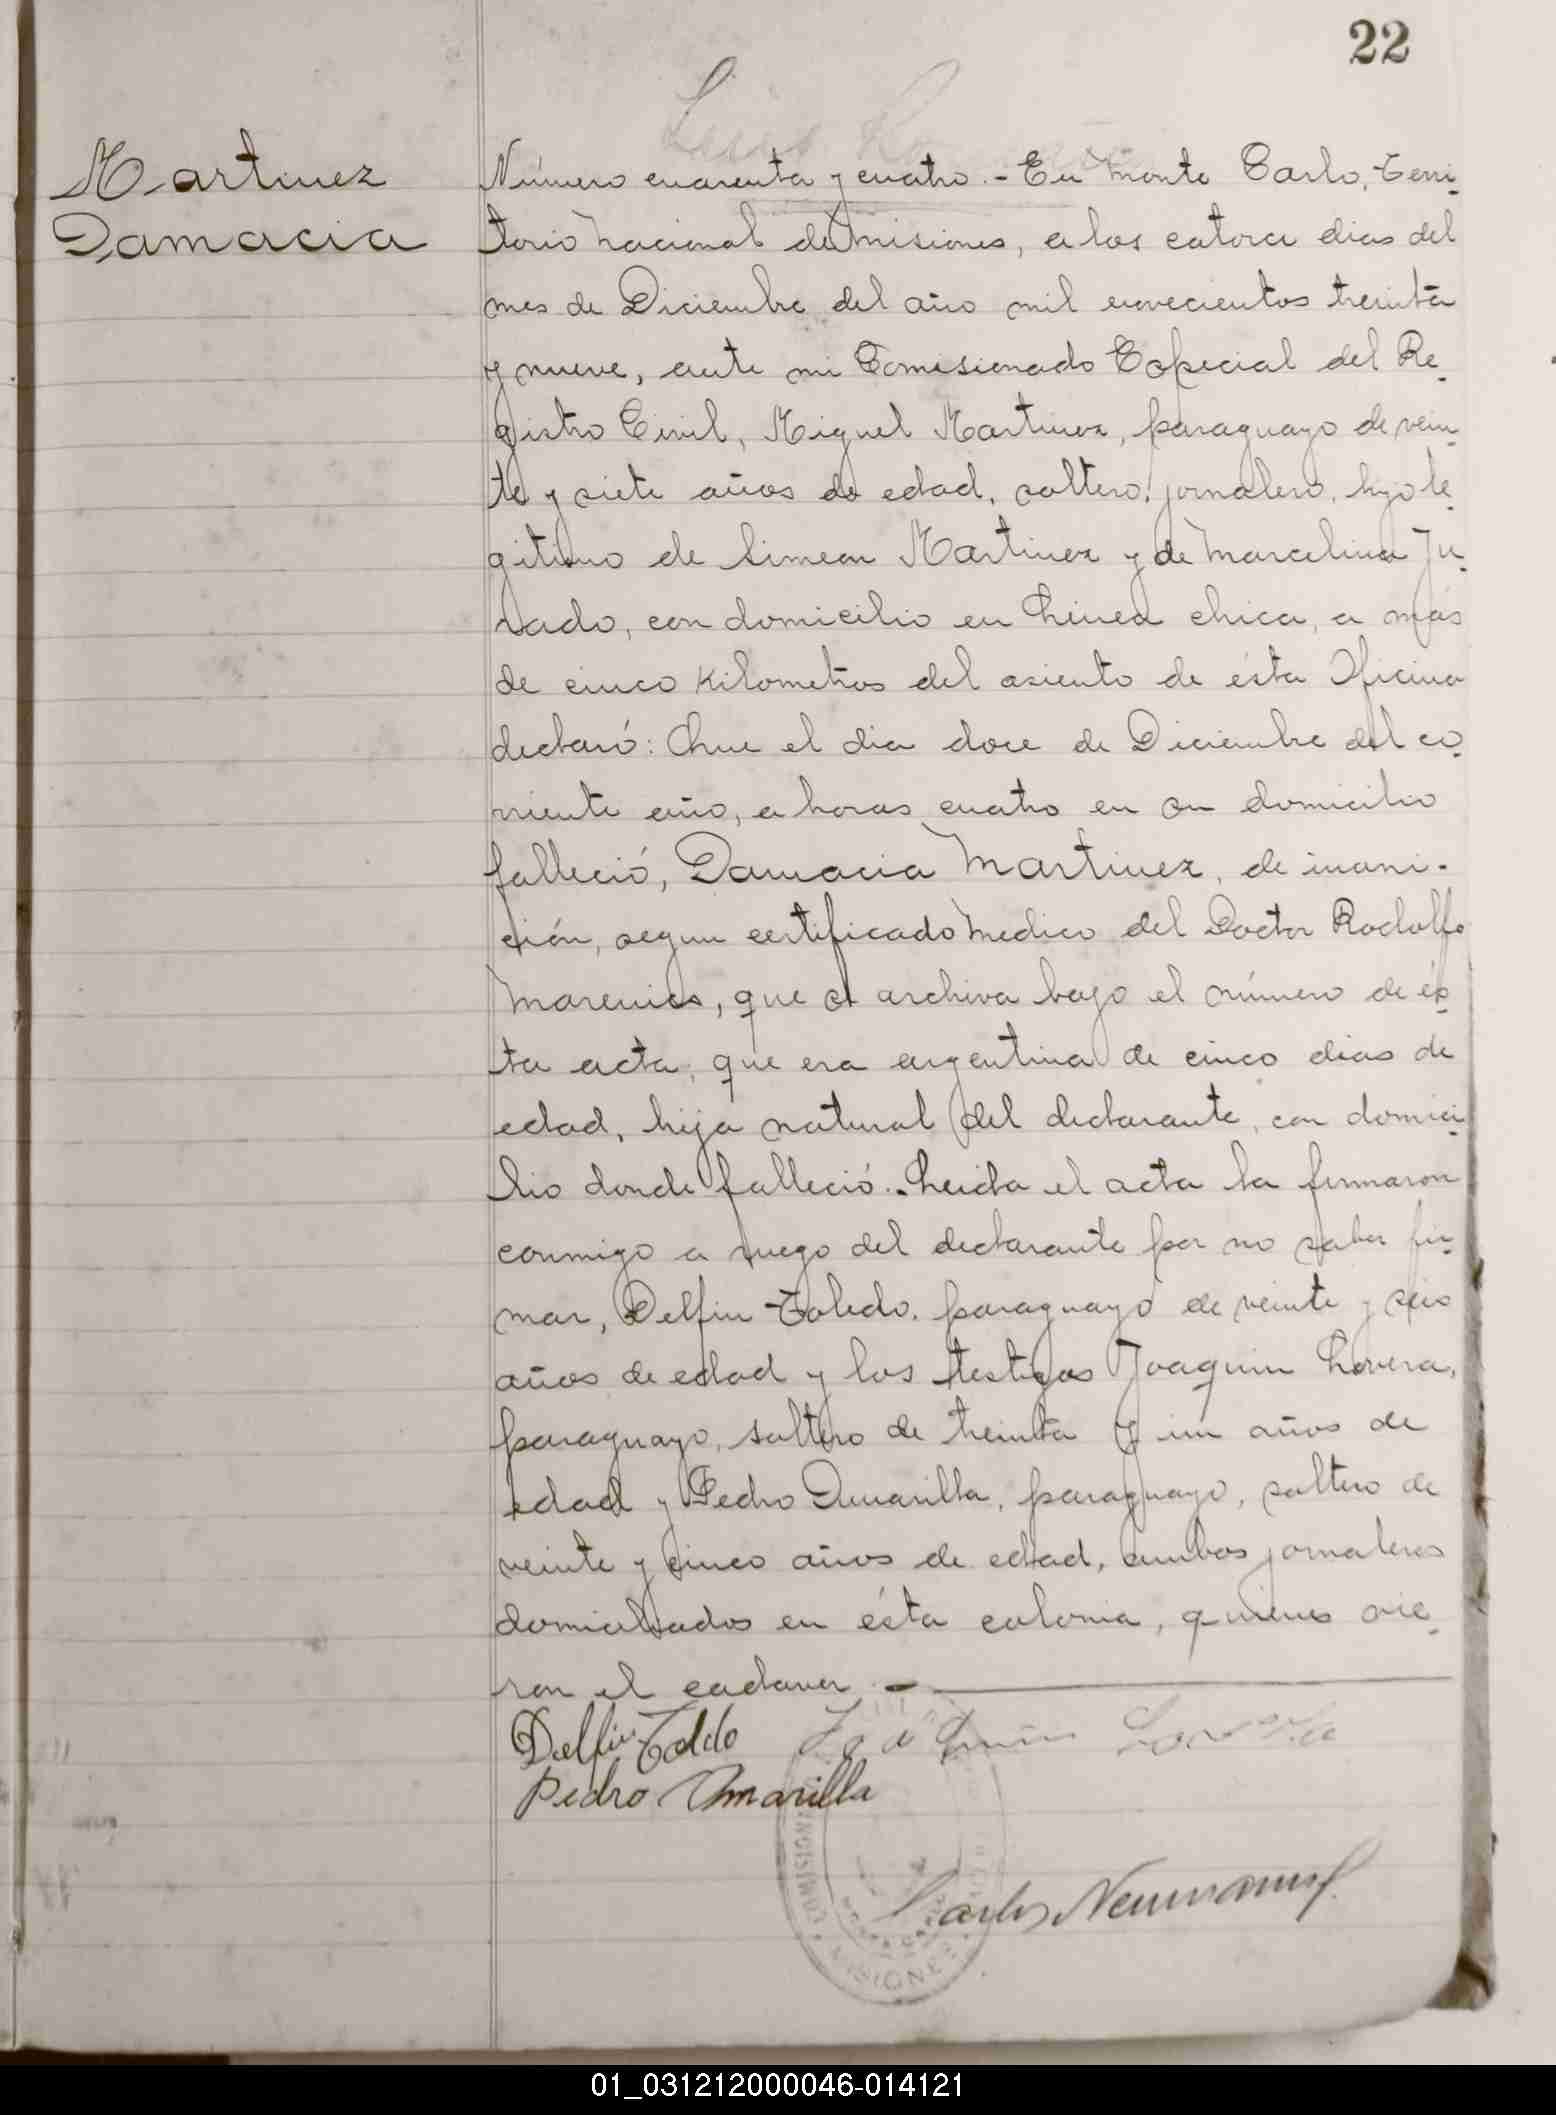 22
Martinez
Damacia
Número cuarenta y cuatro.- En Monte Carlo, Terri-
torio Nacional de Misiones, a los catorce dias del
mes de Diciembre del año mil novecientos treinta
y nueve, ante mi Comisionado Especial del Re-
gistro Civil, Miguel Martinez, paraguayo de vein-
te y siete años de edad, soltero, jornalero, hijo le-
gitimo de Simeon Martinez y de Marcelina Ju-
rado, con domicilio en Linea chica, a más
de cinco Kilometros del asiento de ésta Oficina
declaró: Que el dia doce de Diciembre del co-
rriente año, a horas cuatro en su domicilio
falleció, Damacia Martinez, de inani-
ción, segun certificado Medico del Doctor Rodolfo
que se archiva bajo el número de és-
ta acta, que era argentina de cinco dias de
edad, hija natural del declarante, con domici-
lio donde falleció.- Leida el acta la firmaron
conmigo a ruego del declarante por no saber fir-
mar, Delfin Toledo, paraguayo de veinte y seis
años de edad y los testigos Joaquin Lovera,
paraguayo, soltero de treinta y un años de
edad y Pedro Amarilla, paraguayo, soltero de
veinte y cinco años de edad, ambos jornaleros
domiciliados en ésta colonia, quienes vie-
ron el cadaver.-
Delfin Toldo Joaquin Lovera
Pedro Amarilla
Carlos Neumann
MISIONES
01_031212000046-014121